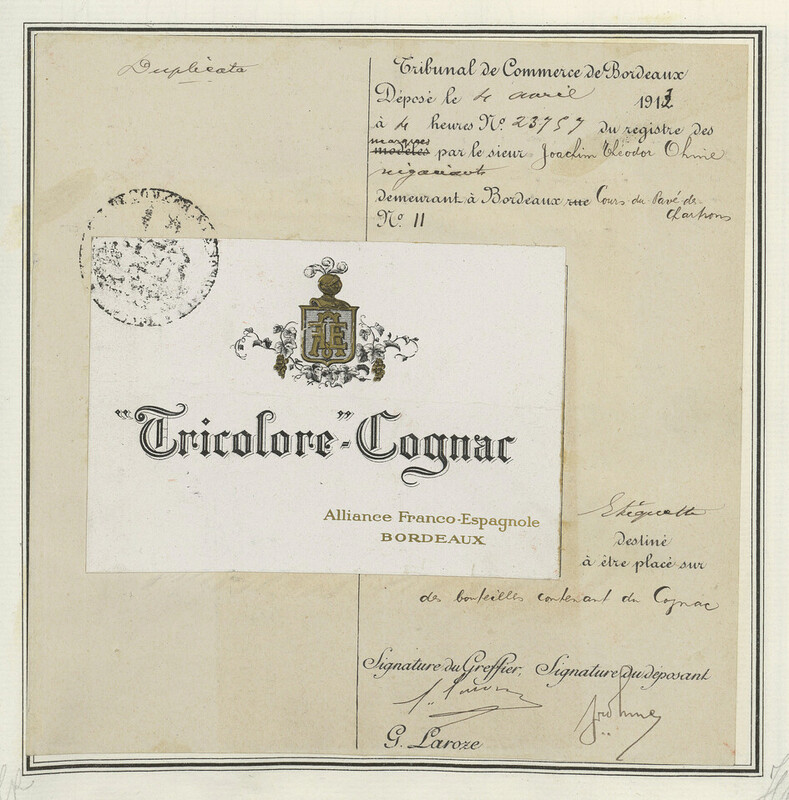 Duplicata
Tribunal de Commerce de Bordeaux
Déposé le 4 avril 191
à 4 heures N° 23757 du registre des
marques
modèles par le sieur Joachim Théodor Ohme
négociant
demeurant à Bordeaux rue Cours du Pavé des
Chartrons
N° 11
"Tricolore"-Cognac
Alliance Franco-Espagnole
BORDEAUX
Etiquette
destiné
à être placé sur
des bouteilles contenant du Cognac
Signature du Greffier, Signature du déposant
G. Laroze